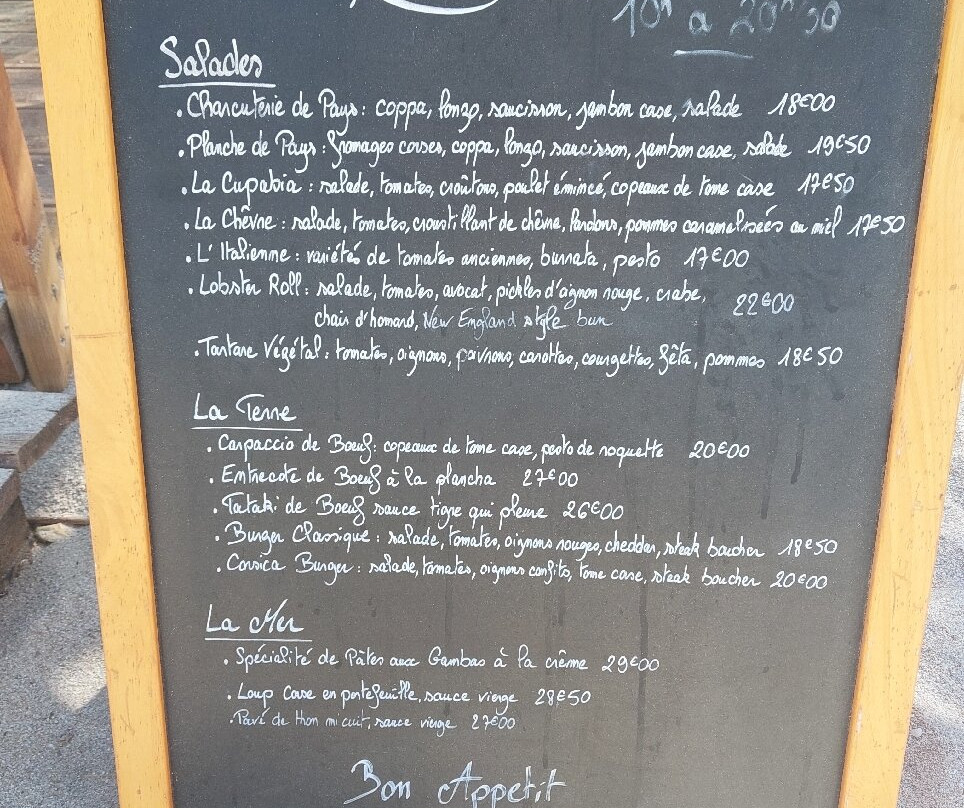 10h à 20h30
Salades
. Charcuterie de Pays : coppa, lonzo, saucisson, jambon corse, salade 18€00
. Planche de Pays : fromages corses, coppa, lonzo, saucisson, jambon corse, salade 19€50
. La Cupabia : salade, tomates, croûtons, poulet émincé, copeaux de tome corse 17€50
. La Chèvre : salade, tomates, croustillant de chèvre, lardons, pommes caramelisées au miel 17€50
. L' Italienne : variétés de tomates anciennes, burrata, pesto 17€00
. Lobster Roll : salade, tomates, avocat, pickles d'oignon rouge, crabe,
chair d'homard, New England style bun 22€00
. Tartare Végétal : tomates, oignons, poivrons, carottes, courgettes, fêta, pommes 18€50
La Terre
. Carpaccio de Boeuf : copeaux de tome corse, pesto de roquette 20€00
. Entrecote de Boeuf à la plancha 27€00
. Tataki de Boeuf sauce tigre qui pleure 26€00
. Burger Classique : salade, tomates, oignons rouges, cheddar, steak boucher 18€50
. Corsica Burger : salade, tomates, oignons confits, tome corse, steak boucher 20€00
La Mer
. Spécialité de Pâtes aux Gambas à la crème 29€00
. Loup Corse en portefeuille, sauce vierge 28€50
. Pavé de thon mi cuit, sauce vierge 27€00
Bon Appetit